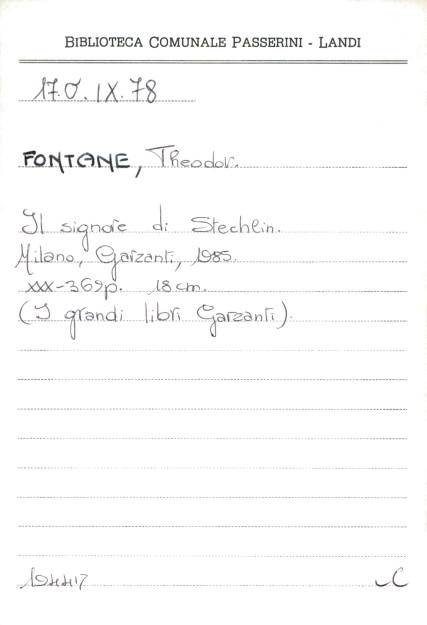 BIBLIOTECA COMUNALE PASSERINI - LANDI
17.O.IX.78
FONTANE, Theodor.
Il signore di Stechlin.
Milano, Garzanti, 1985.
XXX-369p. 18 cm.
(I grandi libri Garzanti).
C